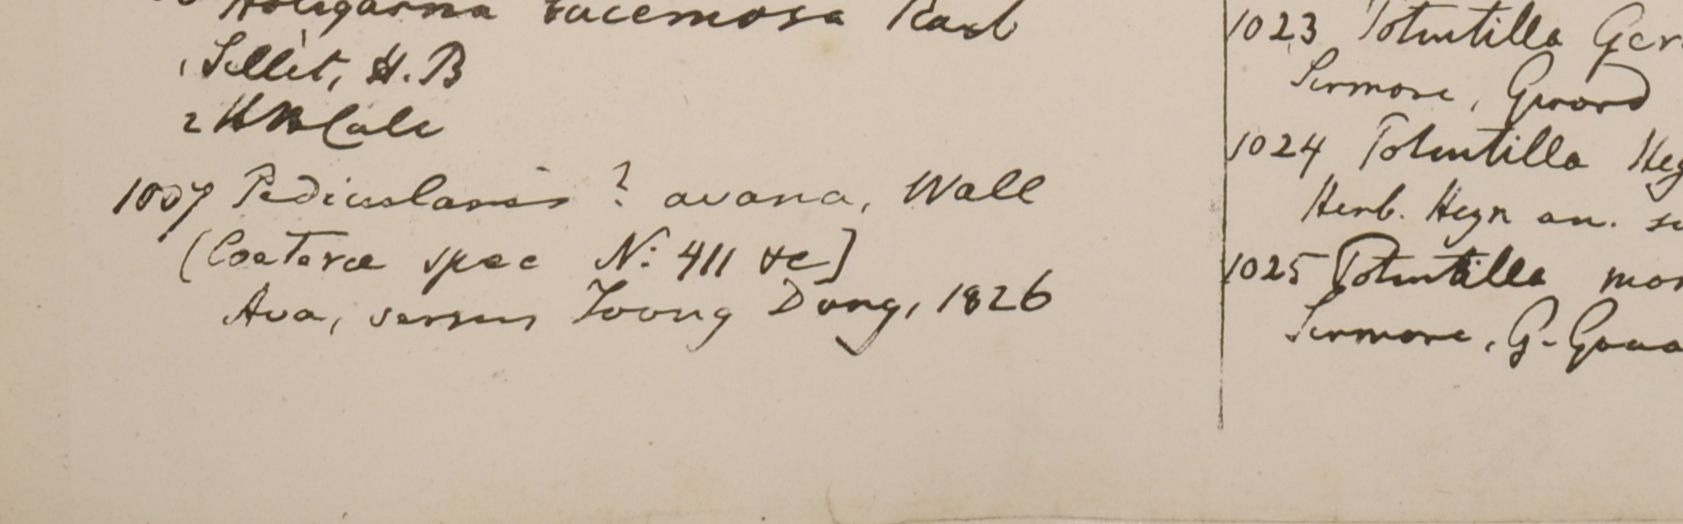 Holigarna racemosa Roxb
1 Sillèt, H.B
2 HB Calc
1007 Pediculariis ? avana, Wall
(Coeterae spec N: 411 &c]
Ava, versus Toong Dong, 1826
1023 Potentilla Ger
Sirmore, Gerard
1024 Potentilla Hey
Herb. Heyn an.
1025 Potentilla mon
Sirmore, G.